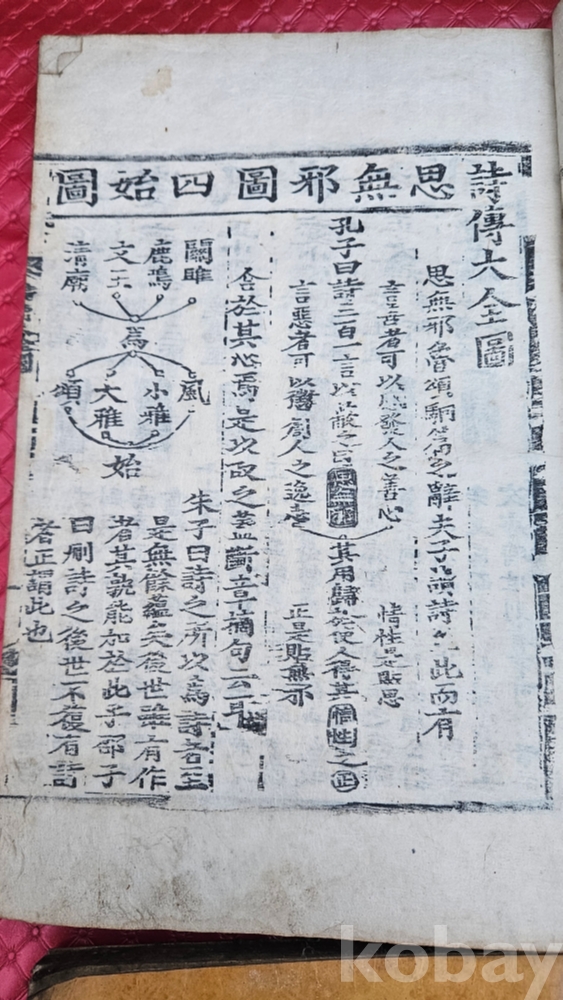 詩傳大全圖
思無邪圖四始圖
思無邪魯頌駉篇之辭夫子讀詩至此而有
合於其心焉是以取之蓋斷章摘句云耳
言善者可以感發人之善心
孔子曰詩三百一言以蔽之曰思無邪
言惡者可以懲創人之逸志
情性是貼思
其用歸於使人得其情性之正
正是貼無邪
關雎
鹿鳴
文王
清廟
為
風
小雅
大雅
頌
始
朱子曰詩之所以為詩者至
是無餘蘊矣後世誰有作
者其孰能加於此乎邵子
曰刪詩之後世不復有詩
者正謂此也
kobay